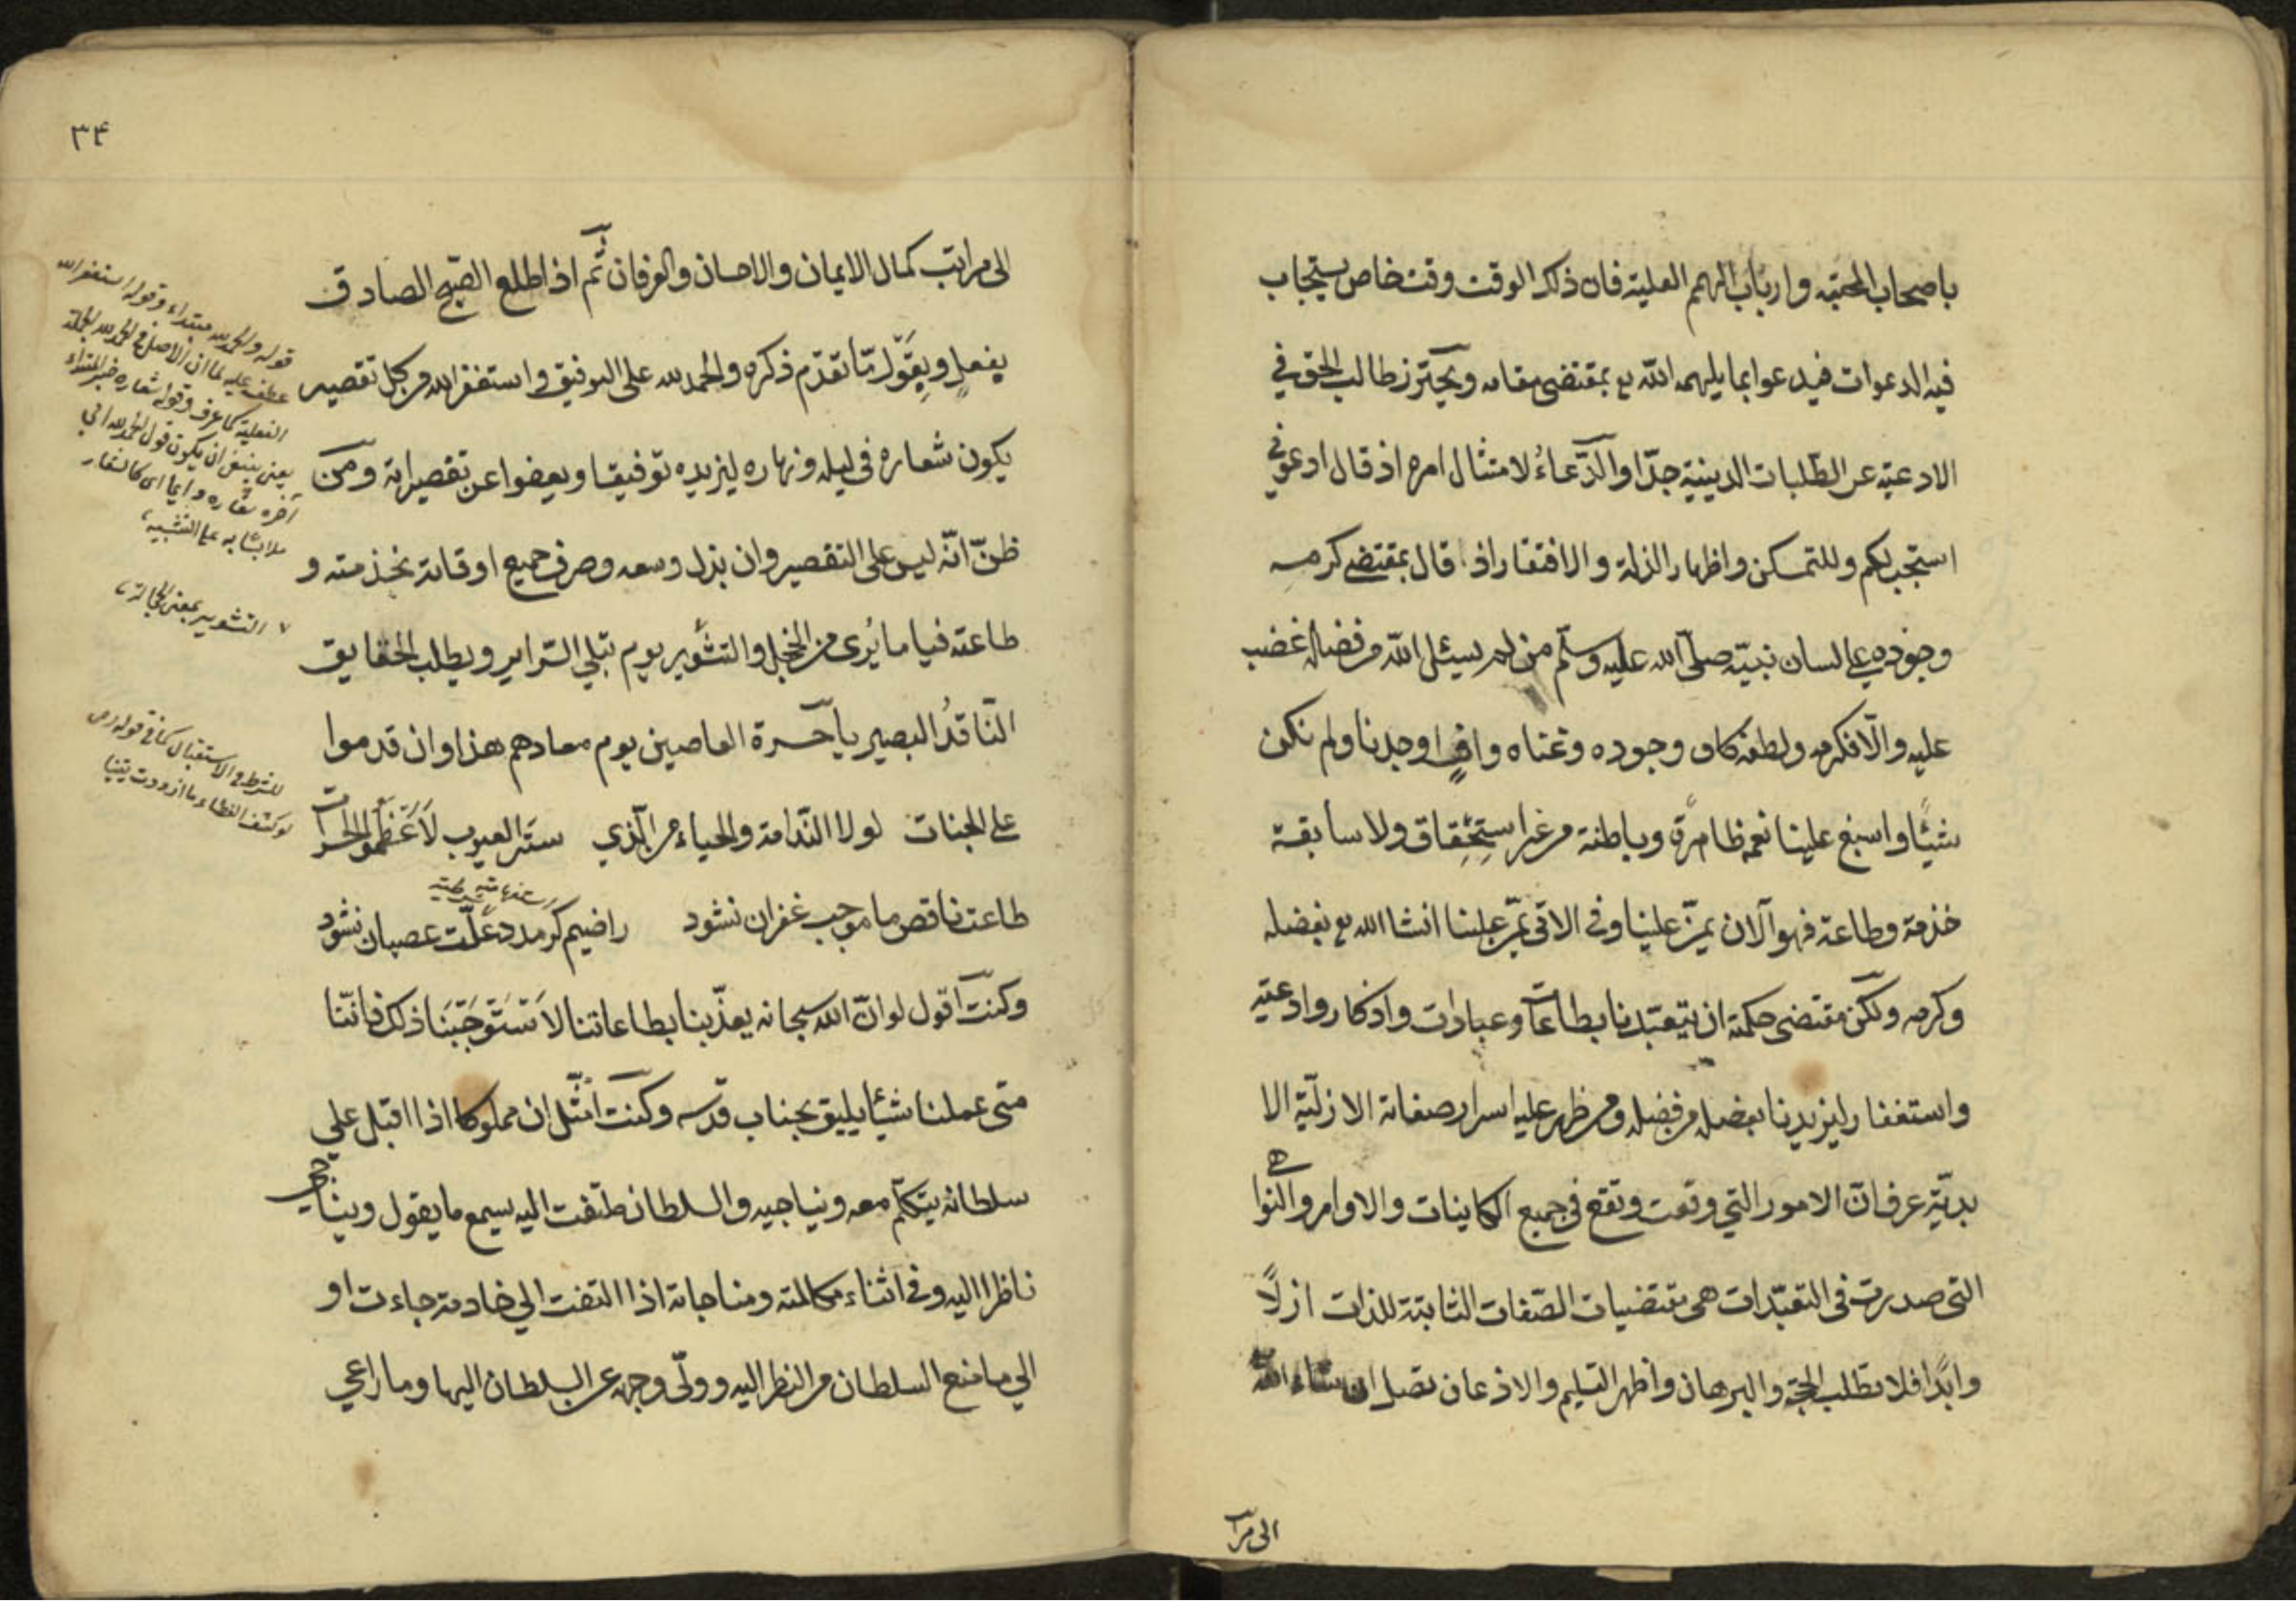 باصحاب المحبّه وارباب الهمم العلية فان ذلك الوقت وقت خاص يستجاب
فيه الدعوات فيدعوا بما يلهمه الله تع بمقتضى مقامه ويحترز طالب الحق في
الادعية عن الطلبات الدينية جدّا والدّعاءُ لامتثال امره اذ قال ادعوني
استجب لكم وللتمسكن واظهار الذلة والافتقار اذ قال بمقتضى كرمه
وجوده على لسان نبيّه صلى الله عليه وسلّم من لم يسئل الله من فضله غضب
عليه والّا فكرمه ولطفه كاف وجوده وغناه وافٍ اوجدنا ولم نكن
شيئًا واسبغ علينا نعمه ظاهرةً وباطنة من غير استِحْقِاق ولا سابقة
خذمة وطاعة فهو الآن يمنّ علينا وفى الاتى يمنّ علينا انشا الله تع بفضله
وكرمه ولكن مقتضى حكمته ان يتعبّدنا بطاعات وعبادات واذكار وادعية
واستغفار ليزيدنا بفضله من فضله ومن ظهر عليه اسرار صفاته الازليّة الا
بديّة عرف انّ الامور التي وقعت وتقع في جميع الكاينات والاوامر والنوا هى
التى صدرت فى التعبّدات هى مقتضيات الصّفات الثابتة للذات ازلًا
وابدًا فلا تطلب الحجة والبرهان واظهر التسليم والاذعان تصل ان شاء الله
الى مرا
٣٤
الى مراتب كمال الايمان والاحسان والعرفان ثم اذا طلع الصّبح الصادق
يفعل ويقول ما تقدّم ذكره والحمد لله على التوفيق واستغفر الله من كل تقصير
يكون شعاره فى ليله ونهاره ليزيده توفيقا ويعفوا عن تقصيراته ومن
ظنّ انّه ليس على التقصير وان بذل وسعه وصرف جميع اوقاته بخذمته و
طاعته فيا ما يُرى من الخجل والتشوير يوم تبلي السّراير ويطلب الحقايق
النّاقدُ البصير يا حسرة العاصين يوم معادهم هذا وان قدموا
على الجنات لولا النّدامة والحياء من الّذي ستر العيوب لاعظموا الحسرات
طاعت ناقص ما موجب غفران نشود راضيم كر مدد علّت عصيان نشود
وكنت اقول لو انّ الله سبحانه يعذّبنا بطاعاتنا لاستوجبنا ذلك فانّنا
متى عملنا شيئًا يليق بجناب قدسه وكنت امثّل ان مملوكا اذا اقبل على
سلطانه يتكلّم معه ويناجيه والسلطان ملتفت اليه يسمع ما يقول ويناجى
ناظرا اليه وفى اثناء مكالمته ومناجاته اذا التفت الى خادمة جاءت او
الى ما منع السلطان من النظر اليه وولّى وجهه عن السلطان اليها وما راعى
قوله والحمد لله مبتداء وقوله استغفر الله
عطف عليه لما ان الاصل فى الحمد لله الجملة
الفعلية كما عرف وقوله شعاره خبر المبتداء
يعنى ينبغى ان يكون قول الحمد لله الى
آخره شعاره دايما اى كالشعار
على التشبيه
التشوير بمعنى الخجالة
للشرط فى الاستقبال كما فى قوله
لو كشف الغطاء ما ازددت يقينا